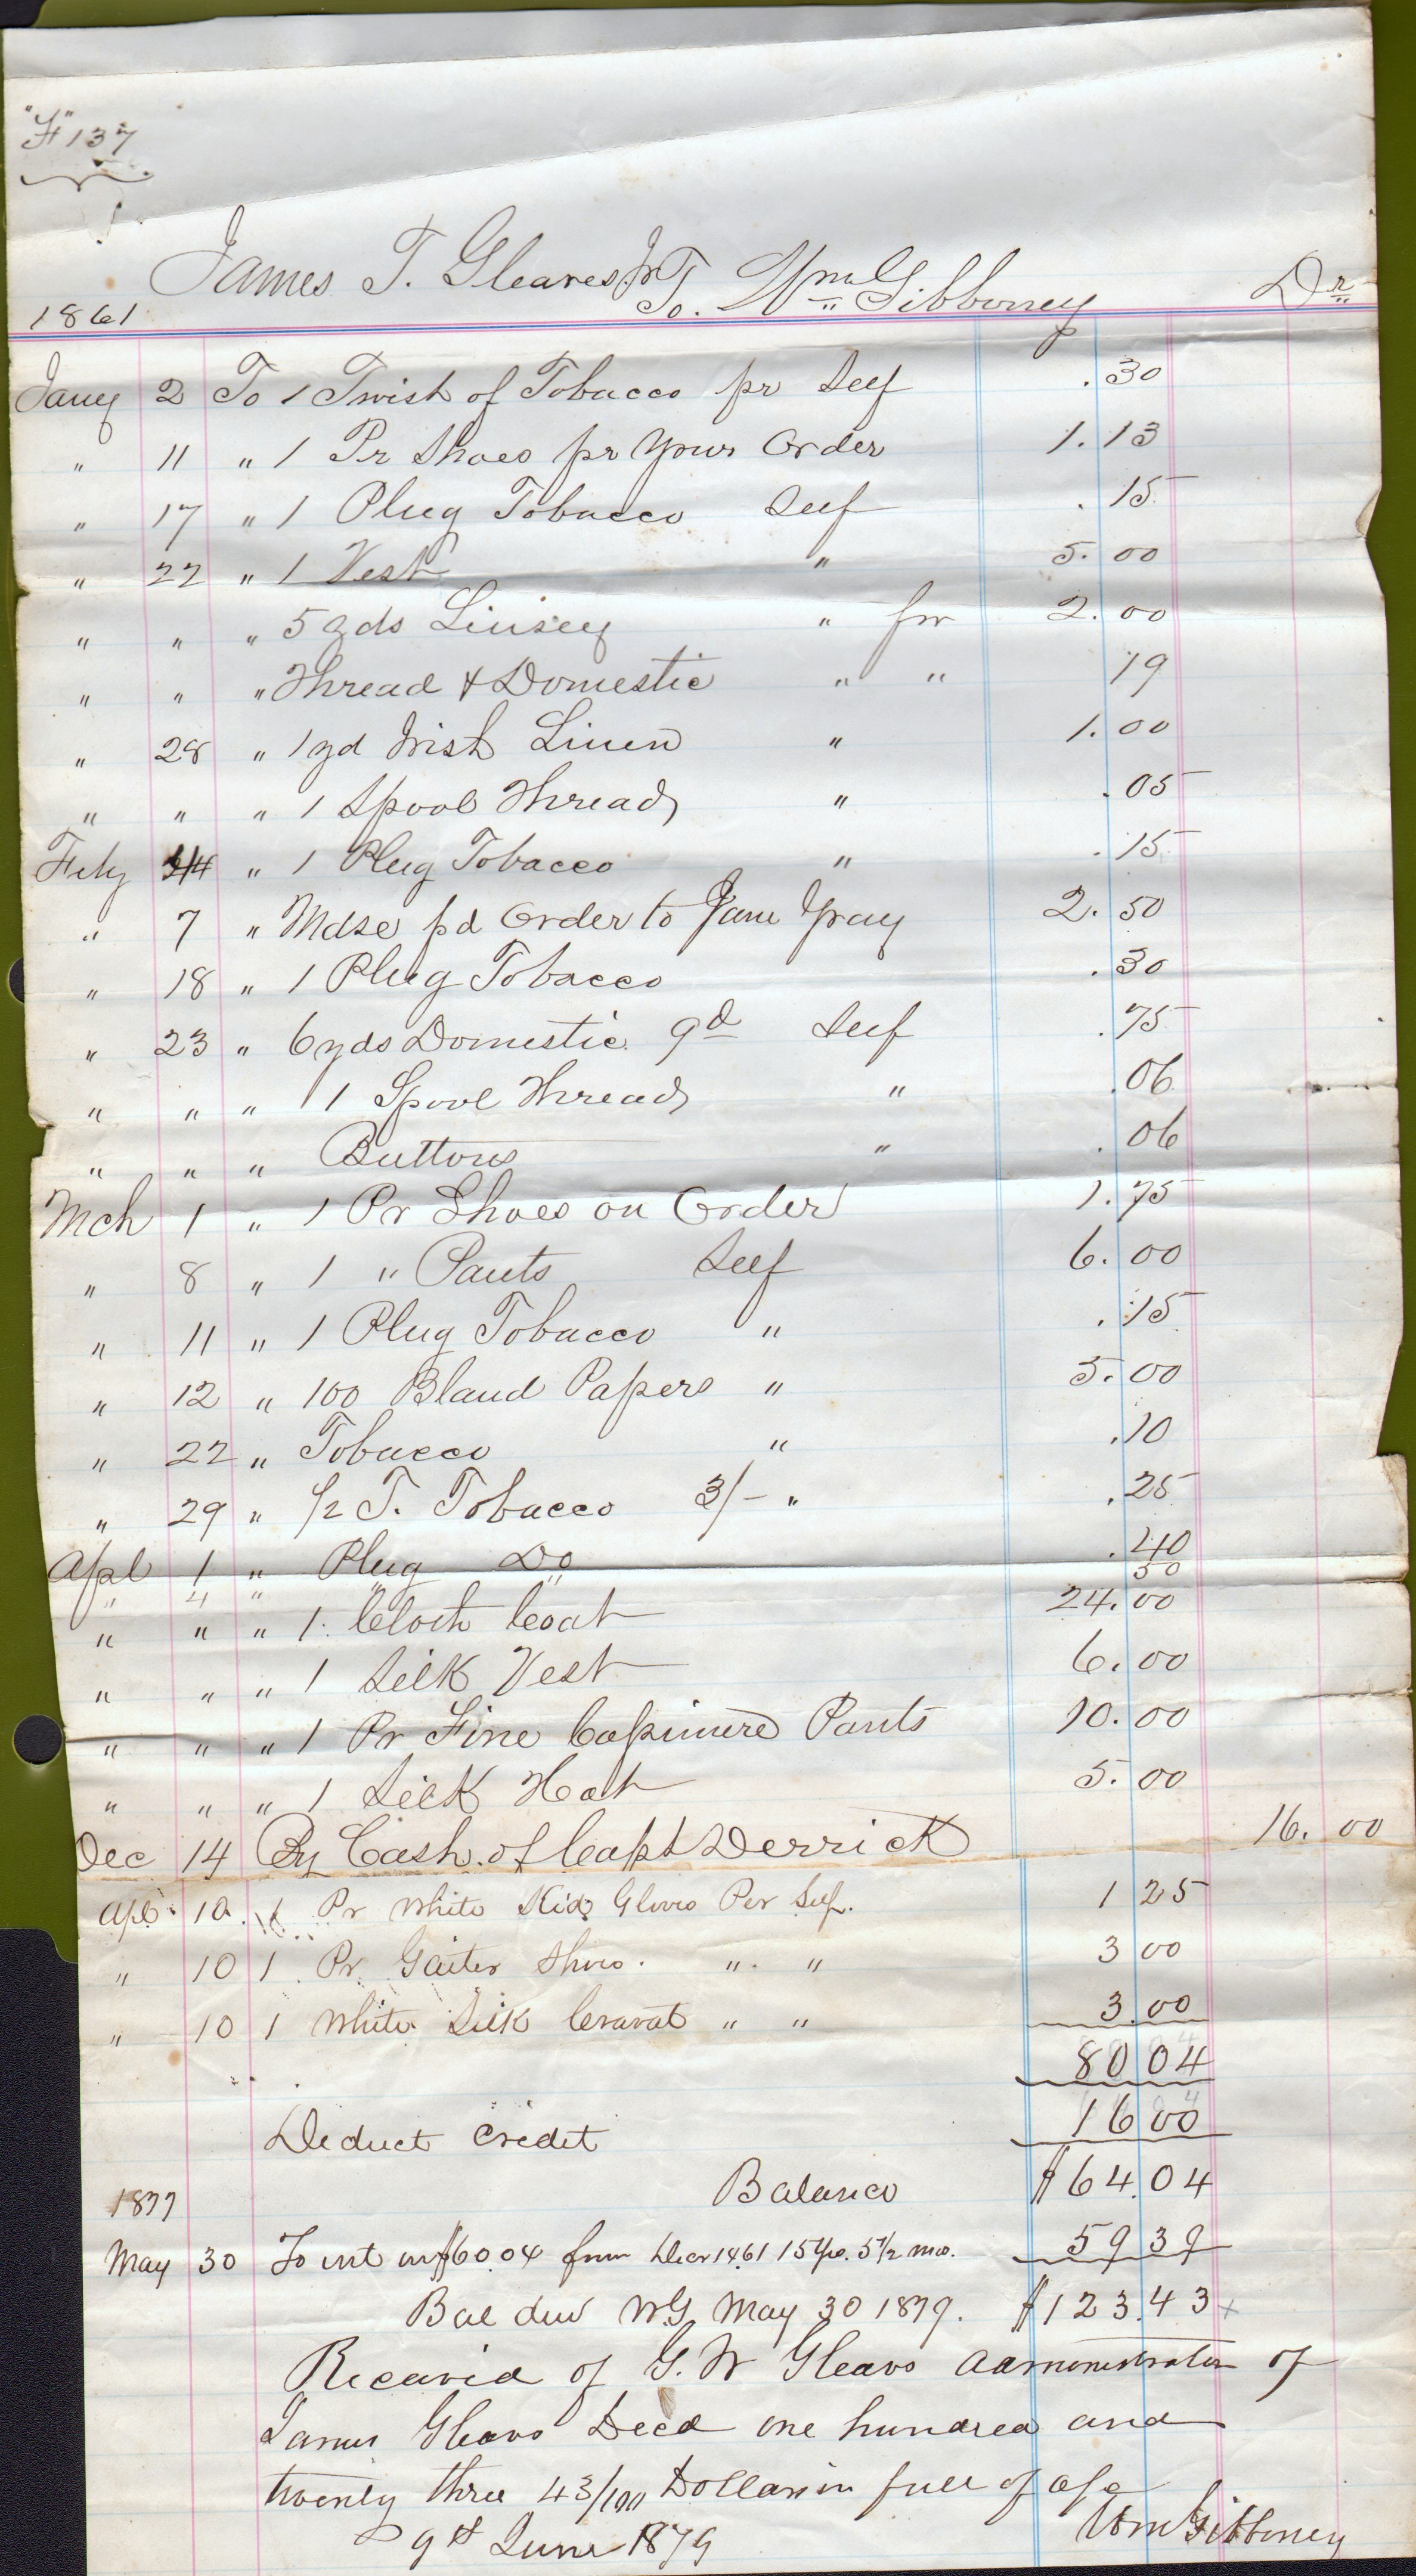 "F" 137
James T. Gleaves Jr To. Wm Gibboney Dr
1861
Jany 2 To 1 Twist of Tobacco pr Self .30
" 11 " 1 Pr Shoes pr Your Order 1.13
" 17 " 1 Plug Tobacco Self .15
" 22 " 1 Vest " 5.00
" " " 5 yds Linsey " for 2.00
" " " Thread & Domestic " " 19
" 28 " 1 yd Irish Linen " 1.00
" " " 1 Spool Thread " .05
Feby 4 " 1 Plug Tobacco " .15
" 7 " Mdse pd Order to Jane Gray 2.50
" 18 " 1 Plug Tobacco .30
" 23 " 6 yds Domestic 9d Self .75
" " " 1 Spool Thread " .06
" " " Buttons " .06
Mch 1 " 1 Pr Shoes on Order 1.75
" 8 " 1 " Pants Self 6.00
" 11 " 1 Plug Tobacco " .15
" 12 " 100 Bland Papers " 5.00
" 22 " Tobacco " .10
" 29 " 1/2 T. Tobacco 3/- " .25
Apl 1 " Plug Do .40
" 4 " " " 50
" " " 1. Cloth Coat 24.00
" " " 1 Silk Vest 6.00
" " " 1 Pr Fine Casimere Pants 10.00
" " " 1 Silk Hat 5.00
Dec 14 By Cash. of Capt Derrick 16.00
Apl 10. 1 Pr White Kid Gloves Per Self. 1 25
" 10 1 Pr Gaiter Shoes. " " 3 00
" 10 1 White Silk Cravat " " 3.00
80 04
Deduct Credit 16 00
Balance $64.04
1877
May 30 To int on $60.04 from Decr 1461 15 yrs. 5 1/2 mo. 59 39
Bal due WG May 30 1879. $123.43
Receivd of G. W Gleavs Administrator of
James Gleavs Decd one hundred and
twenty three 43/100 Dollars in full of a/c
9th June 1879 Wm Gibboney